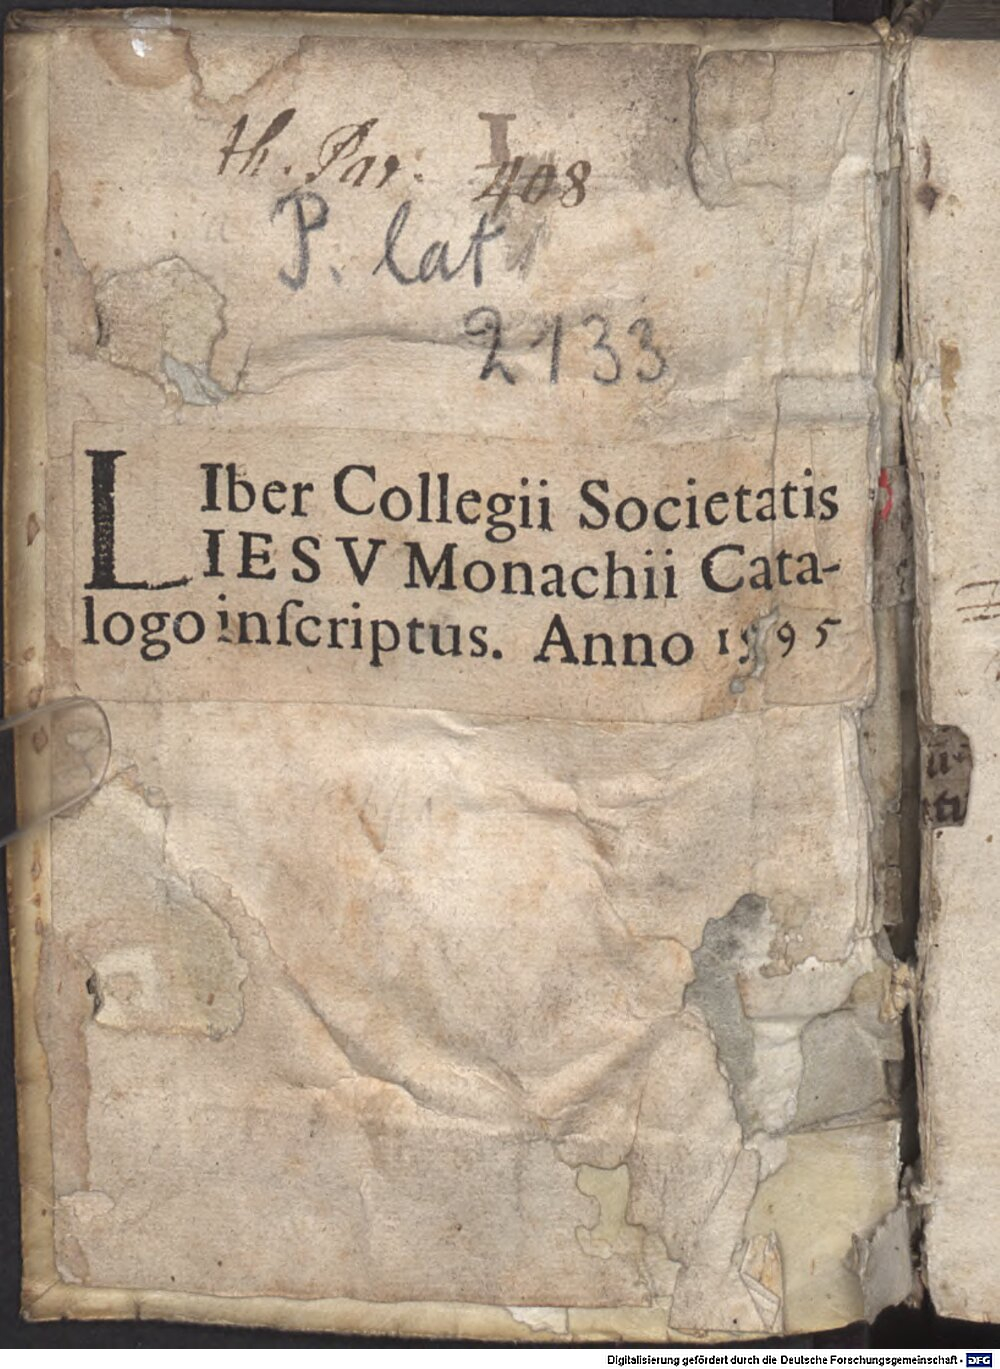 th. Par. I 408
P. lat
2133
LIber Collegii Societatis
IESV Monachii Cata-
logo inſcriptus. Anno 1595
Digitalisierung gefördert durch die Deutsche Forschungsgemeinschaft - DFG